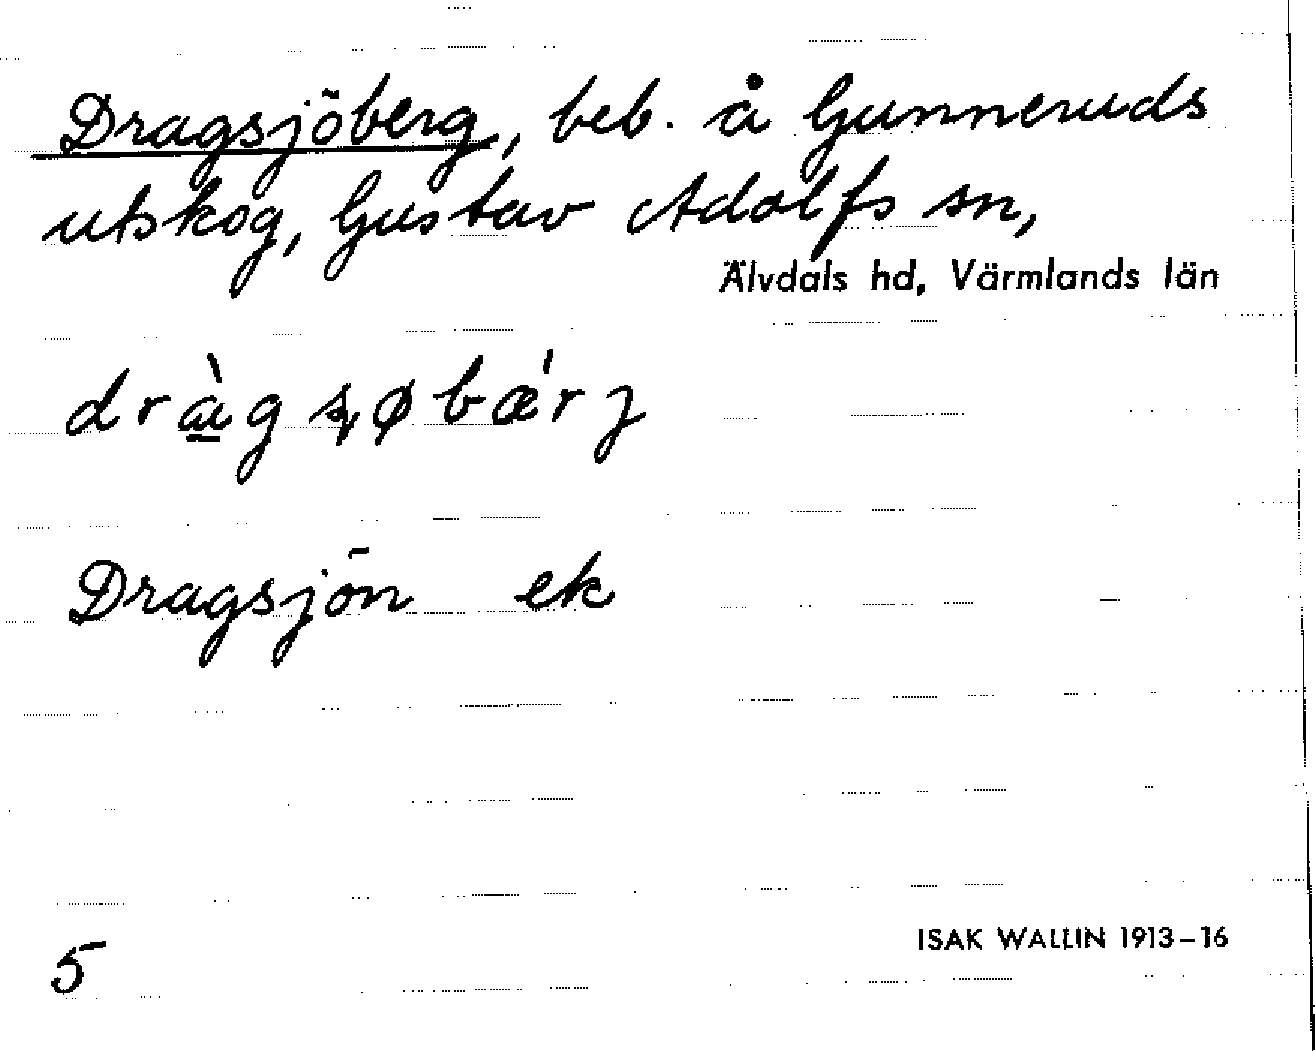 Dragsjöberg, beb. å Gunneruds
utskog, Gustav Adolfs sn,
Älvdals hd, Värmlands län
Dragsjön ek
5
ISAK WALLIN 1913–16